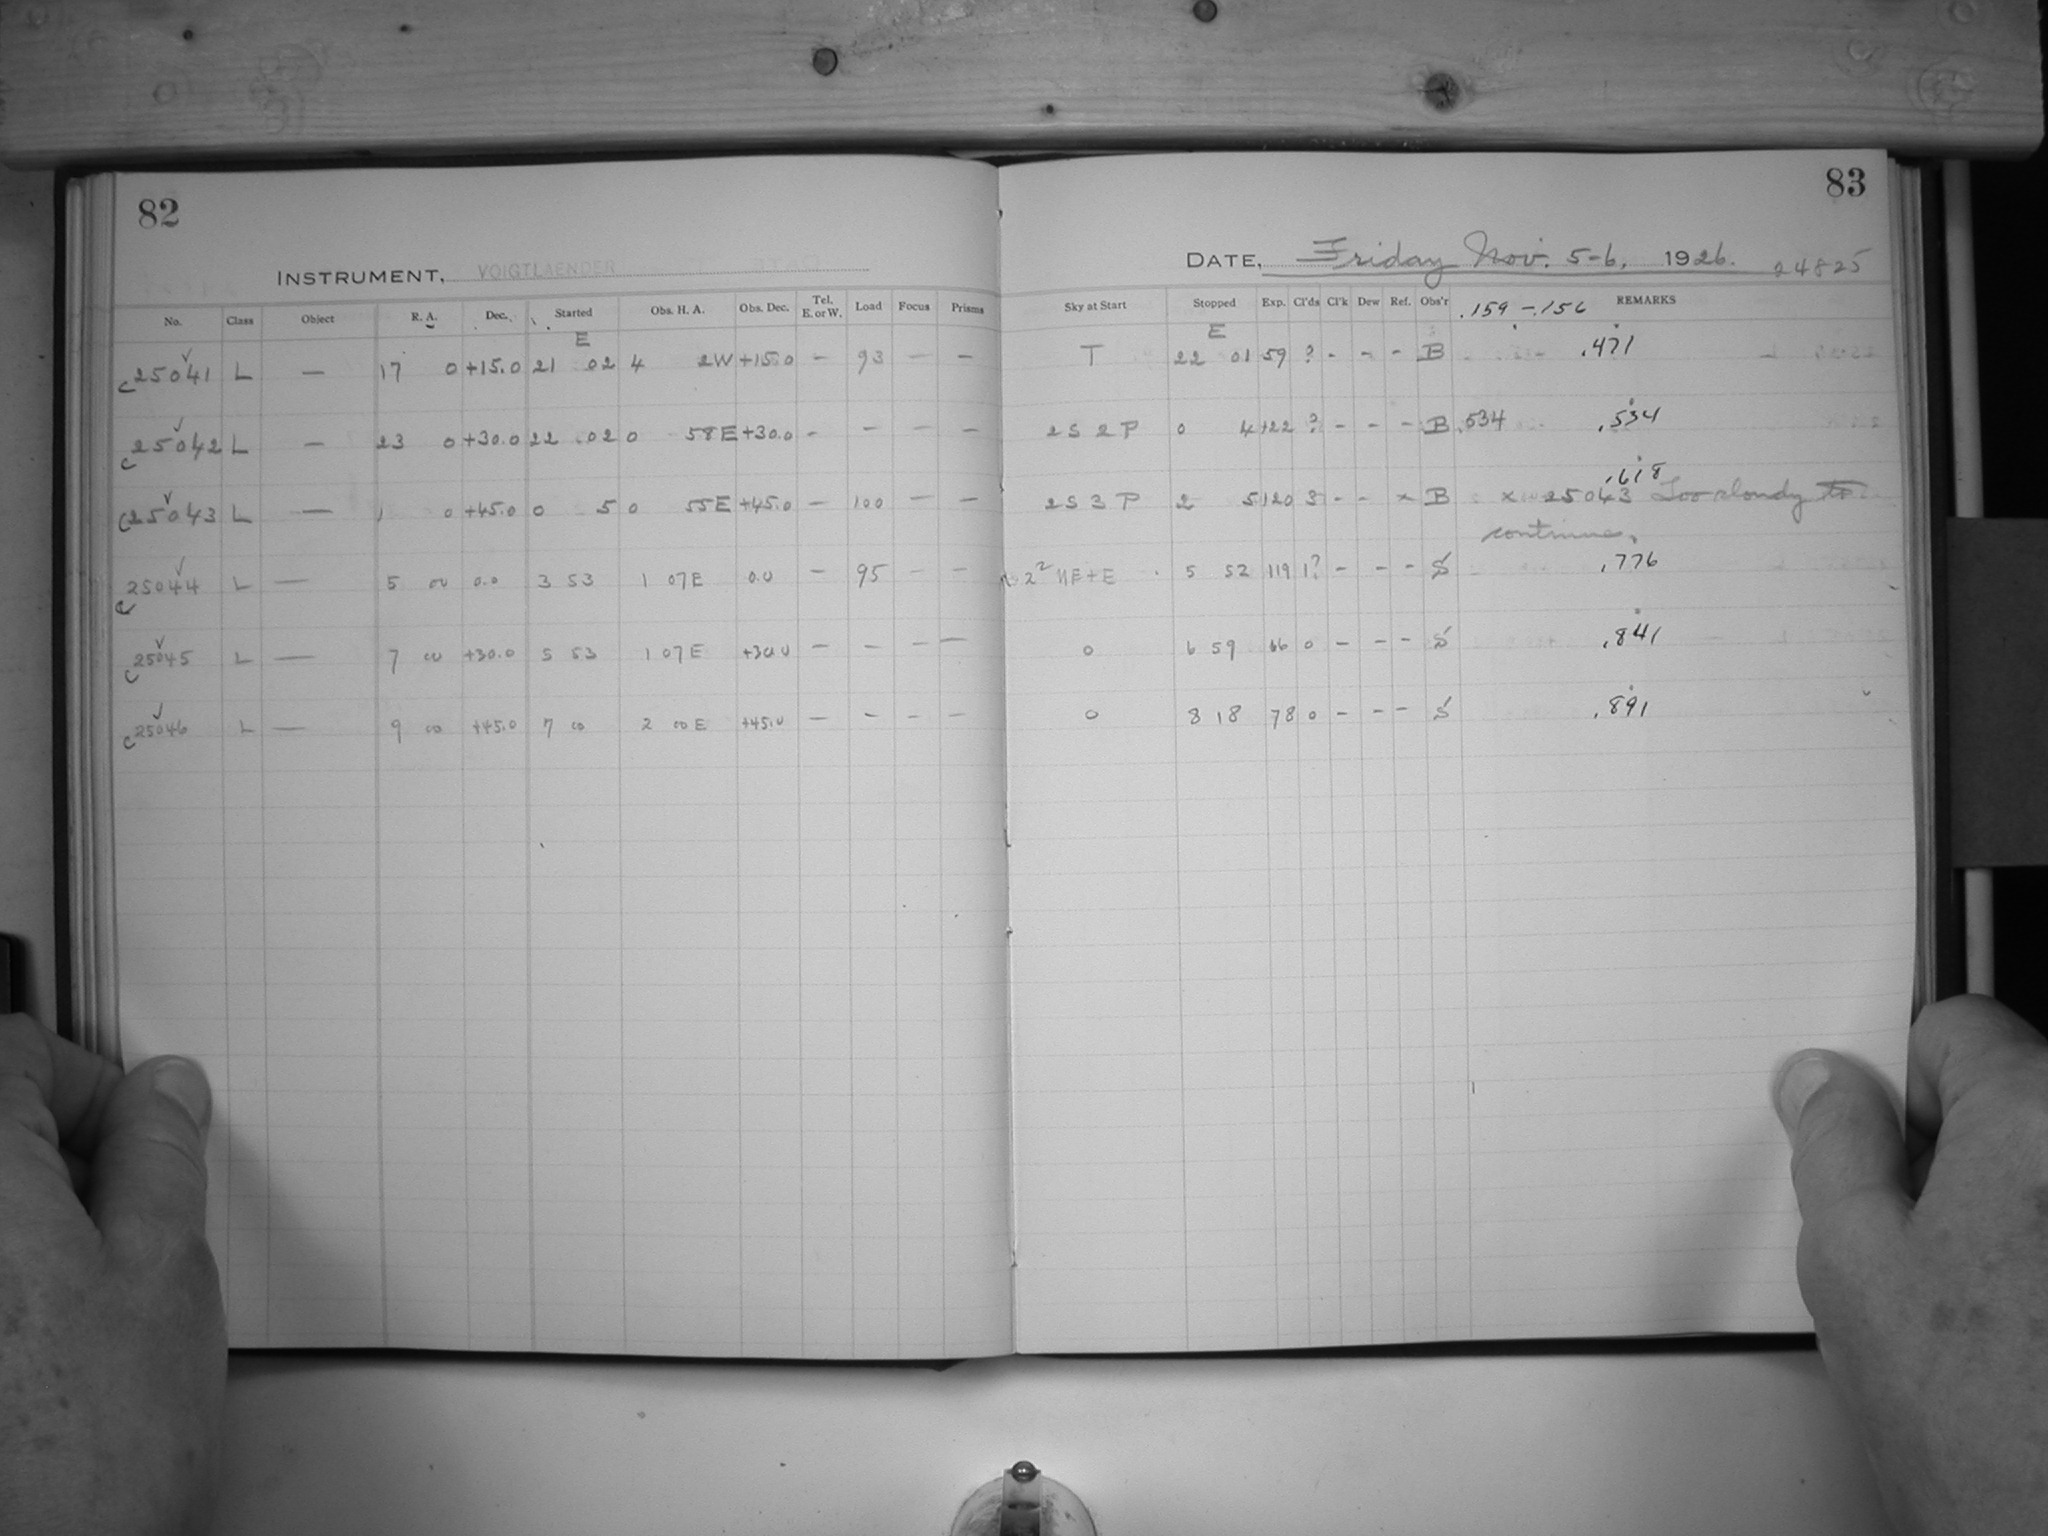 82
INSTRUMENT, VOIGTLAENDER
No. Class Object R. A. Dec. Started Obs. H. A. Obs. Dec. Tel. E. or W. Load Focus Prisms
E
c25041 L — 17 0 +15.0 21 02 4 2W +15.0 - 93 — —
c25042 L — 23 0 +30.0 22 02 0 58E +30.0 - - - —
c25043 L — 1 0 +45.0 0 5 0 55E +45.0 - 100 — —
c25044 L — 5 00 0.0 3 53 1 07E 0.0 — 95 — —
c25045 L — 7 00 +30.0 5 53 1 07E +30.0 — — — —
c25046 L — 9 00 +45.0 7 00 2 00E +45.0 — - - —
83
DATE, Friday Nov. 5-6, 1926. 24825
Sky at Start Stopped Exp. Cl'ds Cl'k Dew Ref. Obs'r .159 - .156 REMARKS
E
T 22 01 59 ? - - - B .471
2 S 2 P 0 4 122 ? - - - B .534 .534
.618
2 S 3 P 2 5 120 3 - - x B x 25043 Too cloudy to
continue.
2² NE+E 5 52 119 1? - - - S .776
0 6 59 66 0 - - - S .841
0 8 18 78 0 - - - S .891